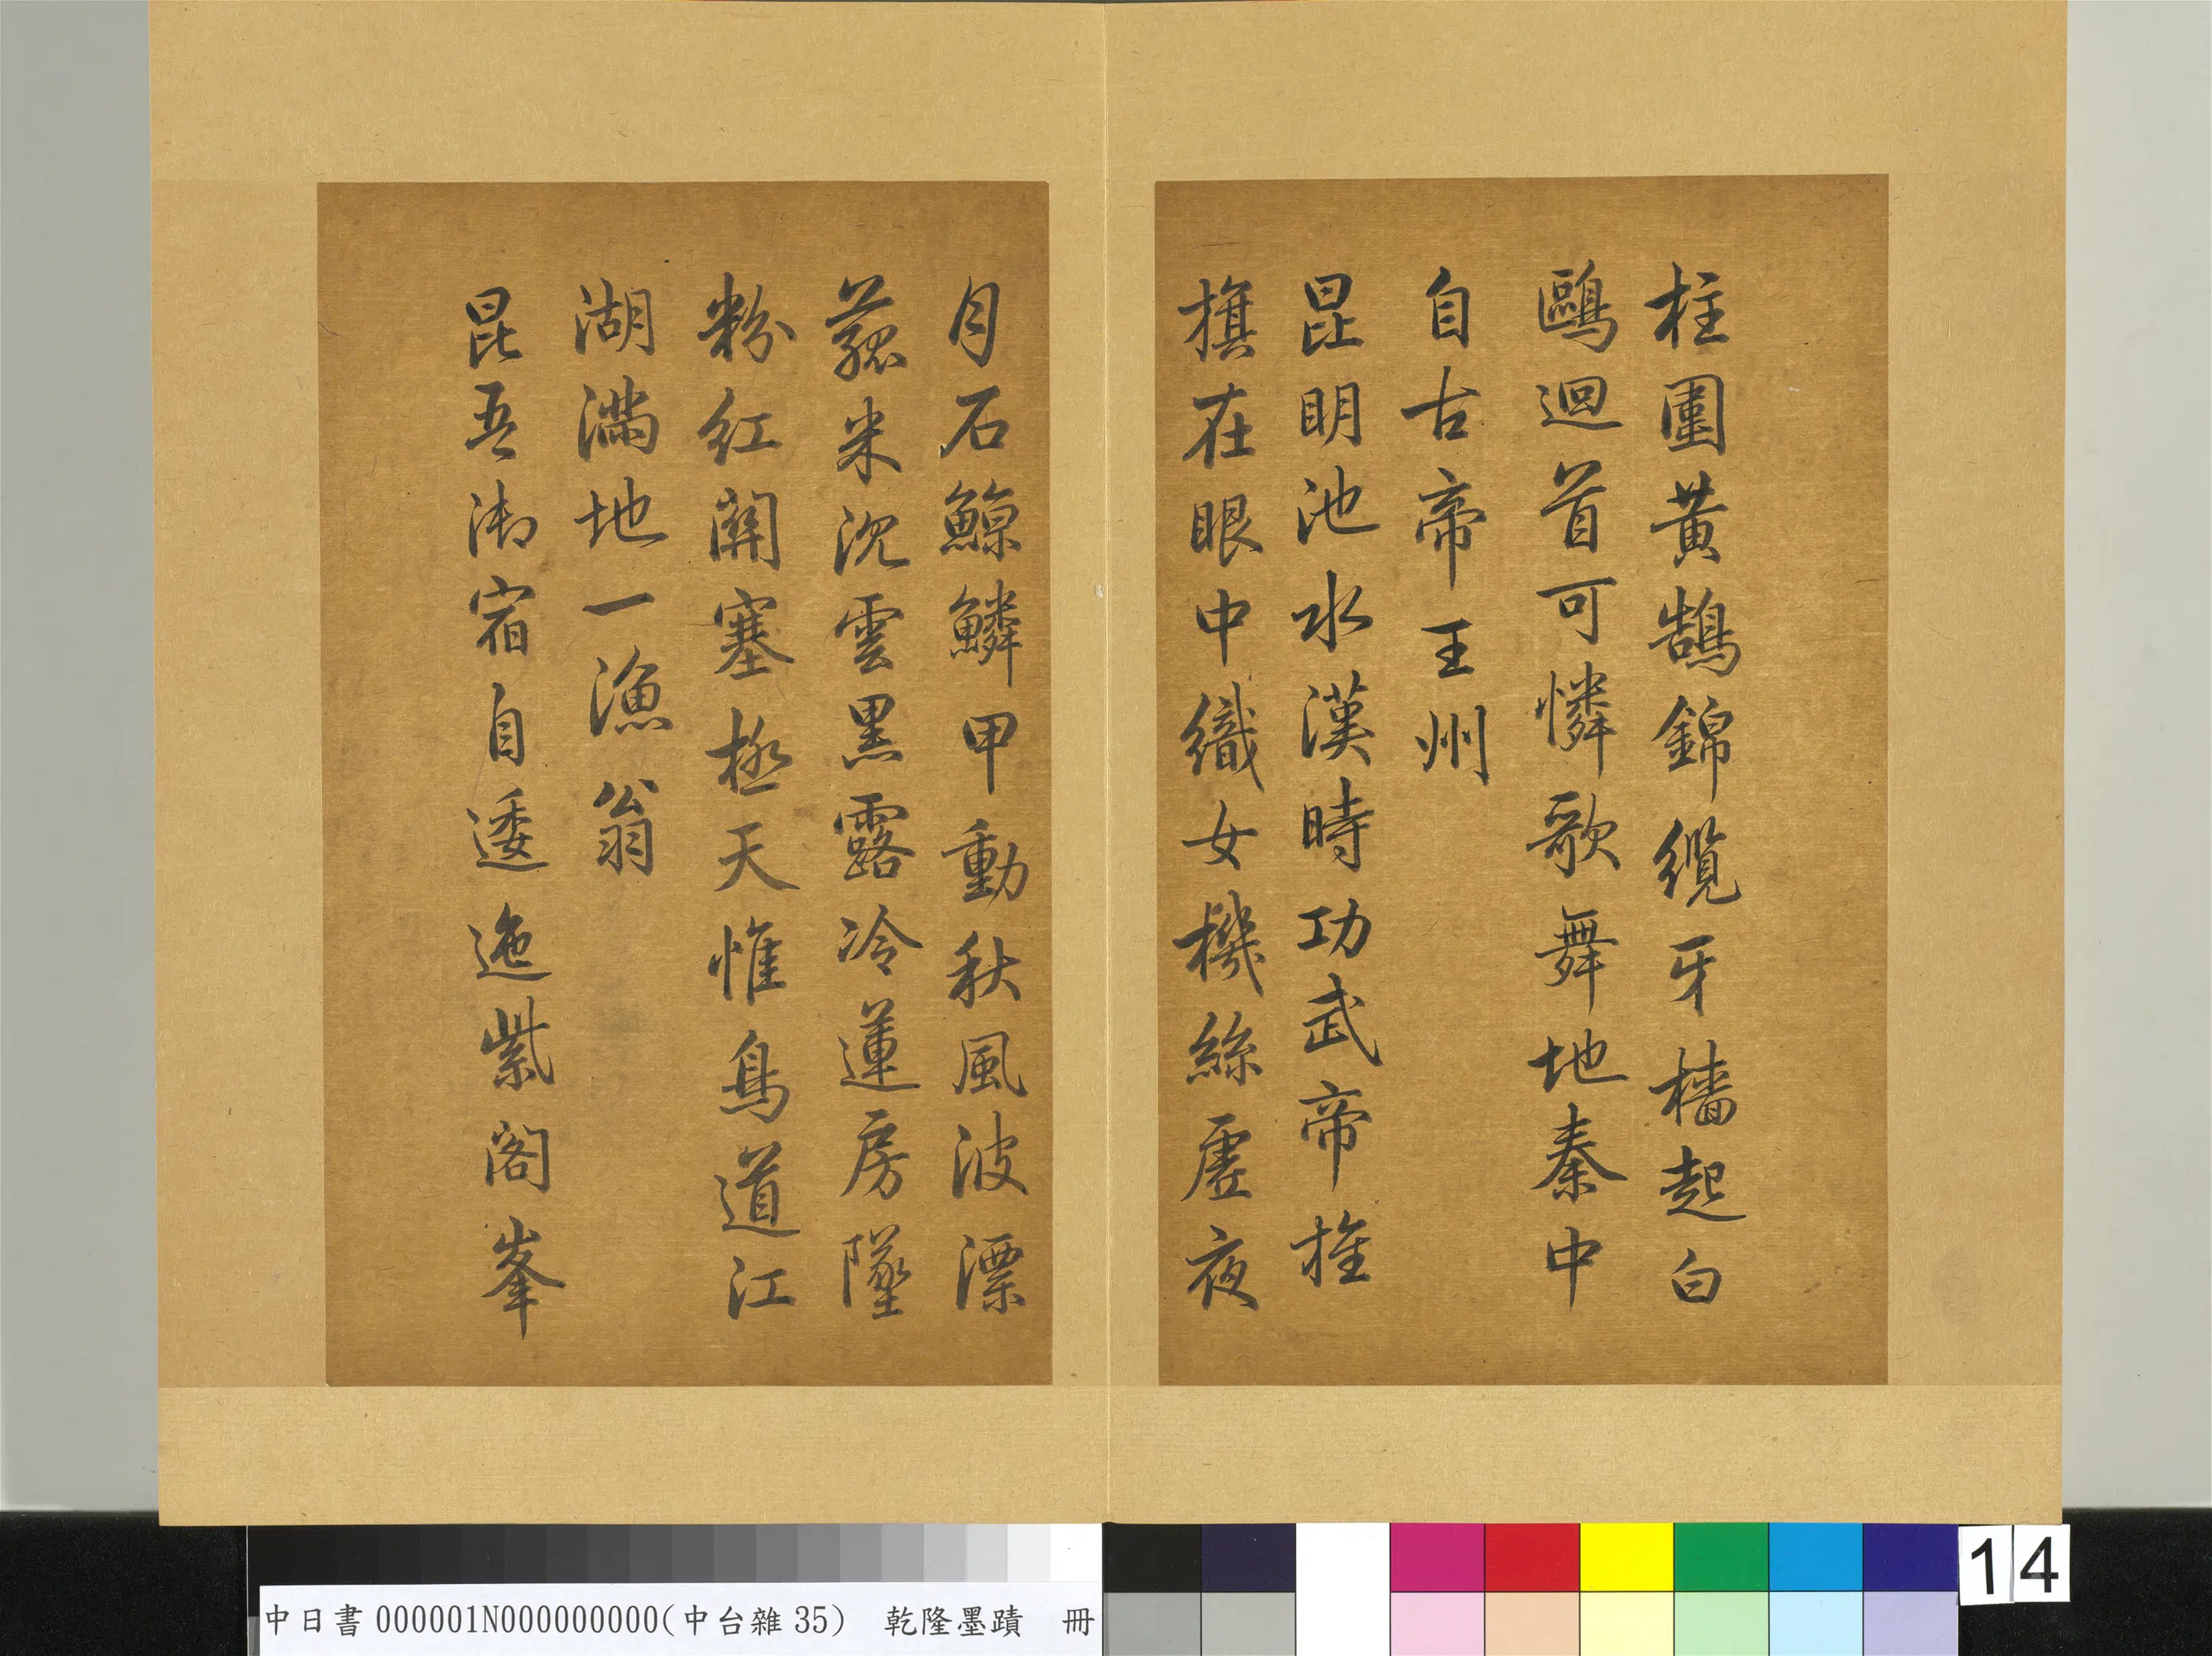 柱圍黃鵠錦纜牙檣起白
鷗迴首可憐歌舞地秦中
自古帝王州
昆明池水漢時功武帝旌
旗在眼中織女機絲虛夜
月石鯨鱗甲動秋風波漂
菰米沉雲黑露冷蓮房墜
粉紅關塞極天惟鳥道江
湖滿地一漁翁
昆吾御宿自逶迤紫閣峯
中日書000001N000000000(中台雜35) 乾隆墨蹟 冊
14